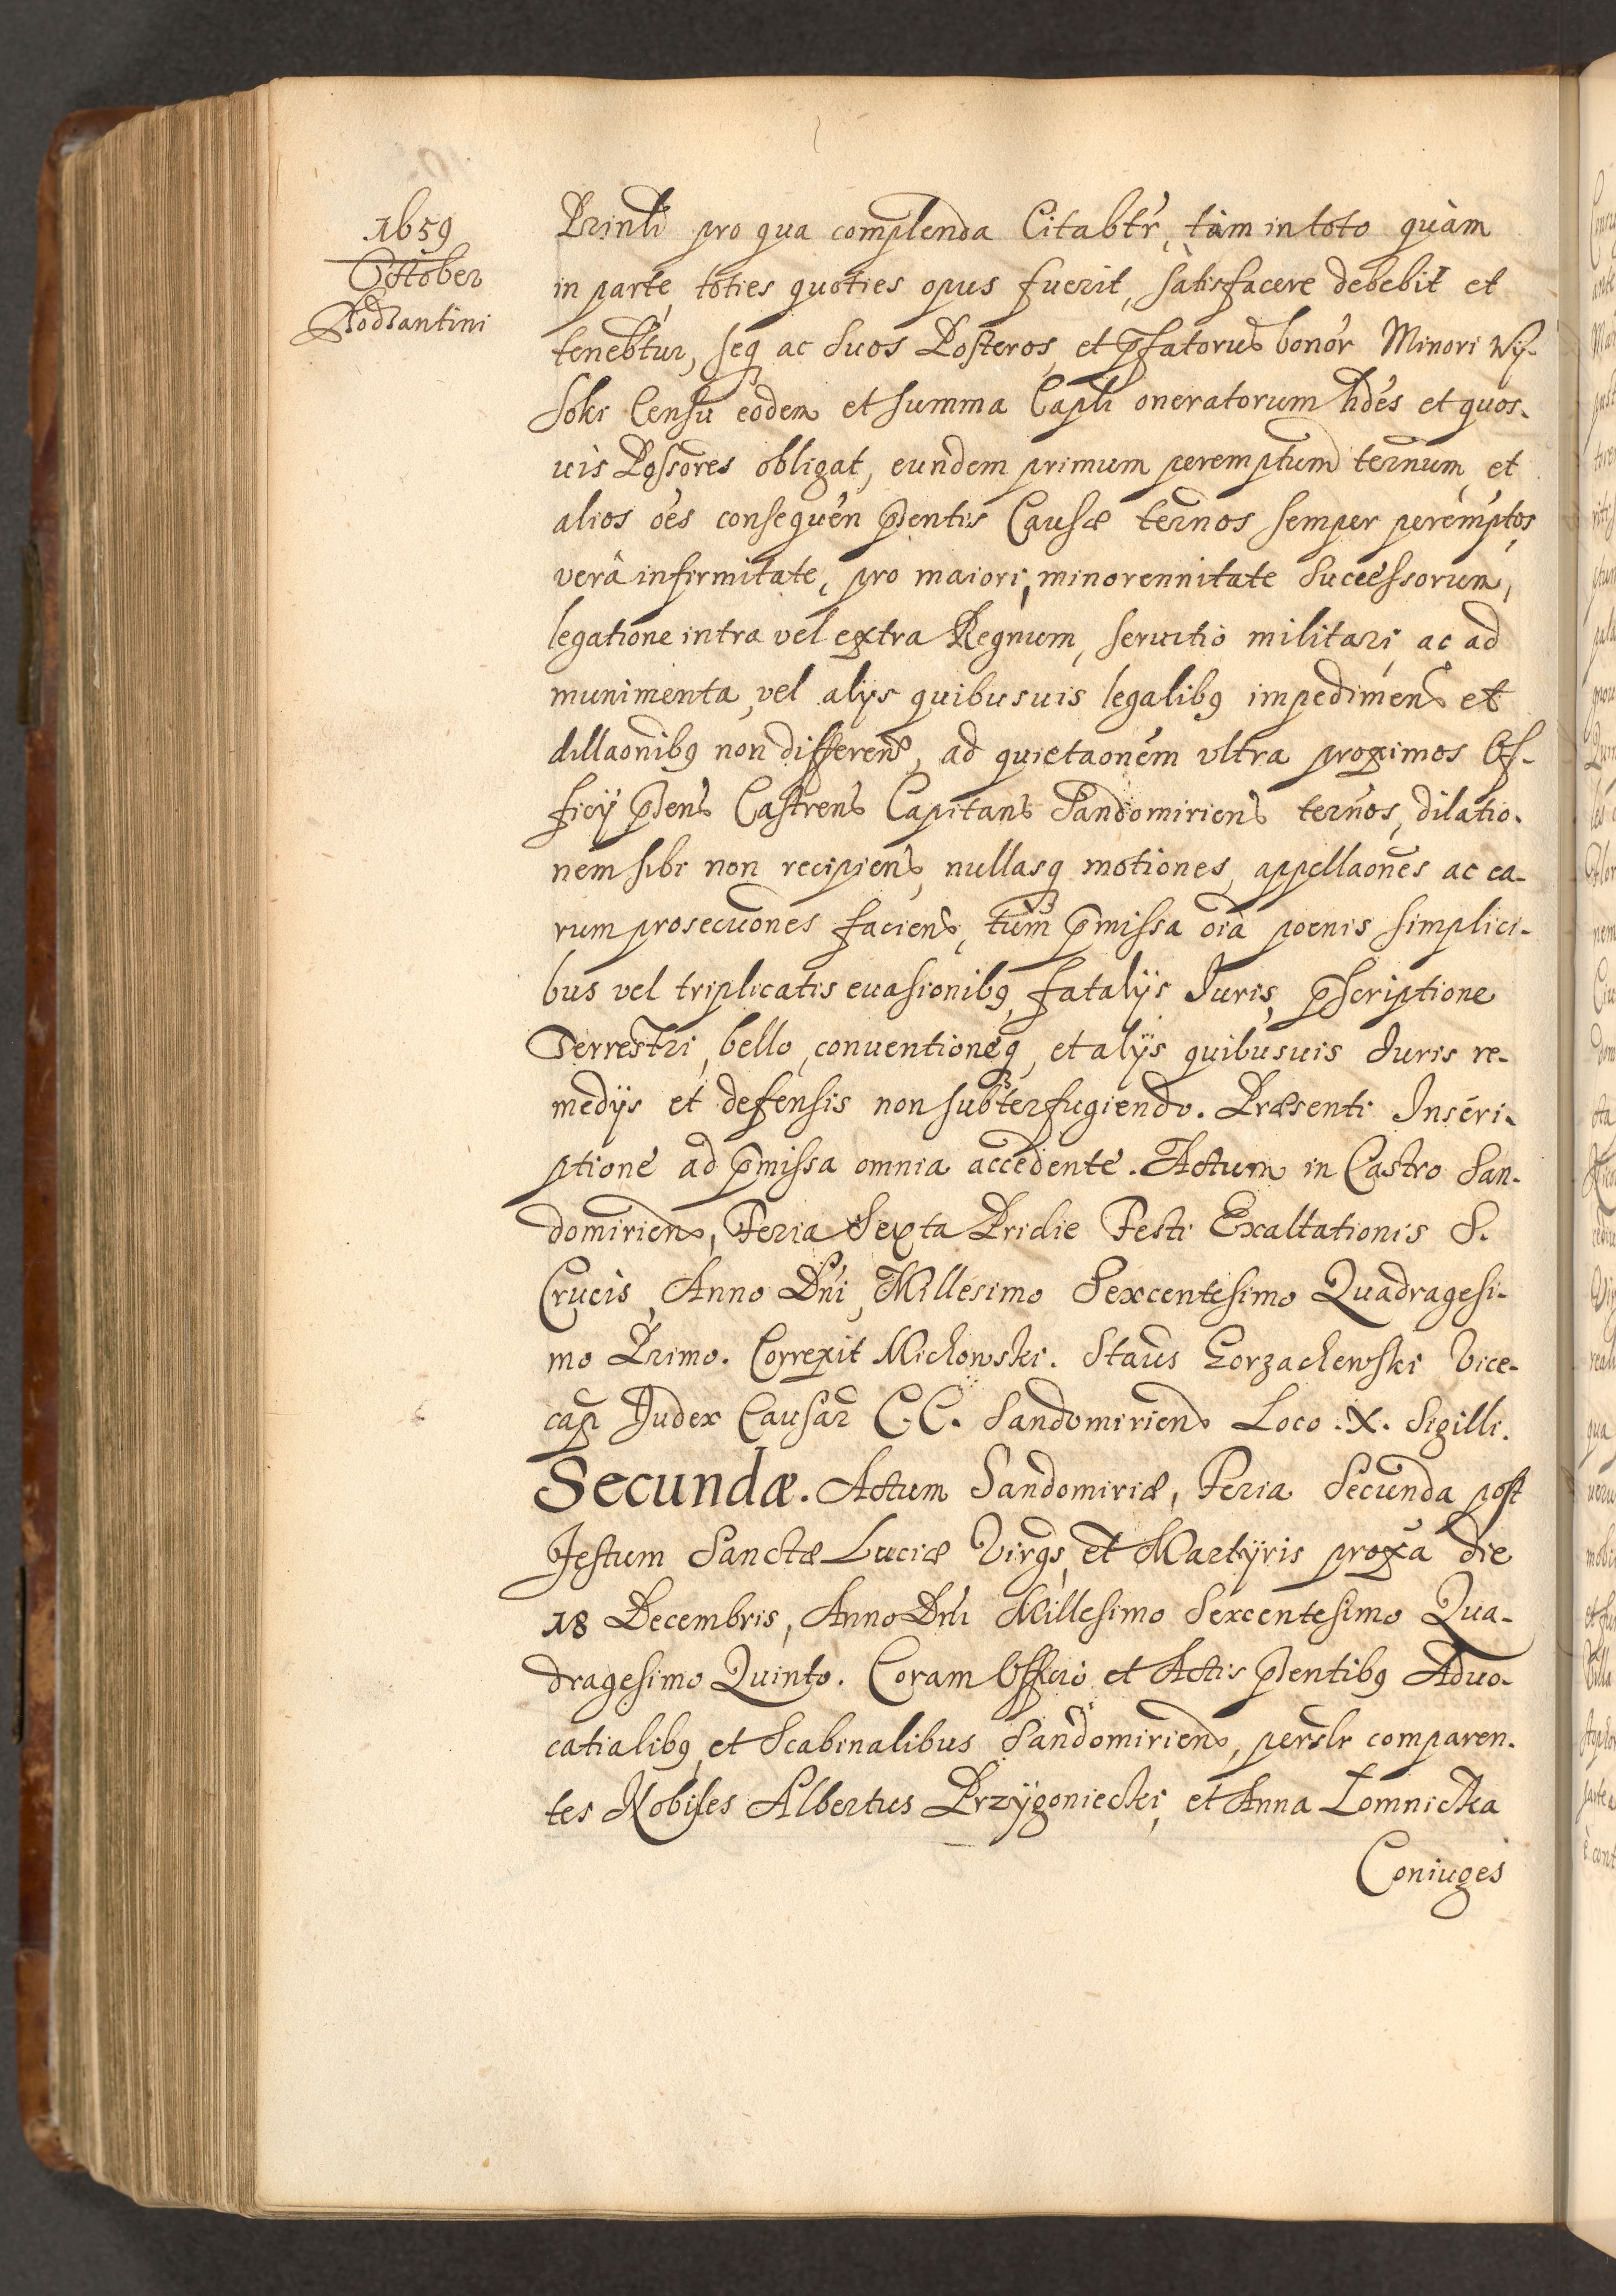 1659
October
Kodrantini
Prinli pro qua complenda Citabtr, tàm in toto quàm
in parte, toties quoties opus fuerit, satisfacere debebit et
tenebtur, seq ac suos Posteros, et pfatorum bonor Minori Wy-
soki Censu eodem et summa Capli oneratorum hdes et quos-
uis Possores obligat, eundem primum peremptum ternum et
alios oes consequen pntis Causæ ternos semper peremptos,
verâ infirmitate, pro maiori, minorennitate Successorum,
legatione intra vel extra Regnum, seruitio militari, ac ad
munimenta, vel alijs quibusuis legalibq impedimens et
dillaonibq non differens, ad quietaonem vltra proximos Of-
ficij pntis Castrens Capitans Sandomiriens ternos, dilatio-
nem sibi non recipiens, nullasq motiones, appellaones ac ea-
rum prosecuones faciens, tum pmissa oia poenis simplici-
bus vel triplicatis euasionibq, fatalijs Iuris, pscriptione
Terrestri, bello, conuentioneq, et alijs quibusuis Iuris re-
medijs et defensis non subterfugiendo. Præsenti Inscri-
ptione ad pmissa omnia accedente. Actum in Castro San-
domirien, Feria Sexta Pridie Festi Exaltationis S.
Crucis, Anno Dni, Millesimo Sexcentesimo Quadragesi-
mo Primo. Correxit Michowski. Staus Gorzachewski Vice-
cap Judex Causar C.C. Sandomirien Loco .X. Sigilli.
Secundæ. Actum Sandomiriæ, Feria Secunda post
Festum Sanctæ Luciæ Virgs, et Martyris proxa die
18 Decembris, Anno Dni Millesimo Sexcentesimo Qua-
dragesimo Quinto. Coram Officio et Actis pntibq Aduo-
catialibq et Scabinalibus Sandomirien, perslr comparen-
tes Nobiles Albertus Przygoniecki, et Anna Lomnicka
Coniuges